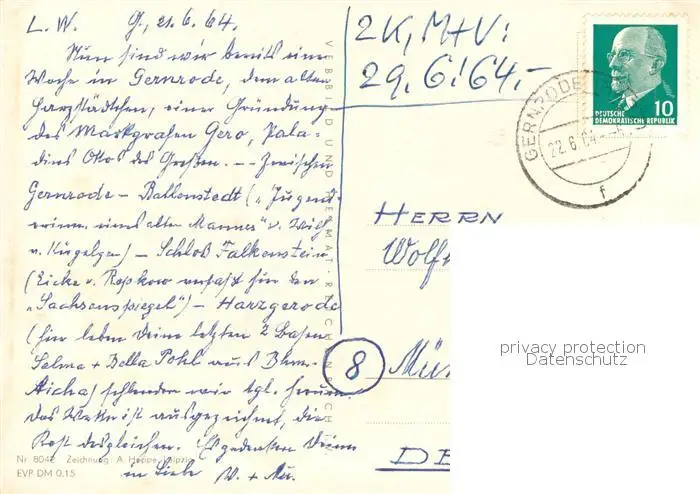 L. W. G, 21.6.64.
Nun sind wir bereits eine
Woche in Gernrode, dem alten
Harzstädtchen, einer Gründung
des Markgrafen Gero, Pala=
dins Ottos des Großen. -- Zwischen
Gernrode - Ballenstedt („Jugend-
erinn. eines alten Mannes" v. Wilh.
v. Kügelgen) - Schloß Falkenstein
(Eicke v. Repkow verfaßt hier den
„Sachsenspiegel") - Harzgerode
(hier leben Deine letzten 2 Basen
Selma + Bella Pohl aus Bhm.
Aicha) schlendern wir tgl. herum
das Wetter ist ausgezeichnet, die
Kost desgleichen. Es gedenken Deiner
in Liebe W. + Mu.
2K, M+V:
29.6.'64.-
GERNRODE
22.6.64
f
10
DEUTSCHE
DEMOKRATISCHE REPUBLIK
HERRN
Wolf
8 Mün
DE
VEB BILD UND HEIMAT REICHENBACH
Nr. 8042 Zeichnung: A. Hoppe, Leipzig
EVP DM 0.15
privacy protection
Datenschutz